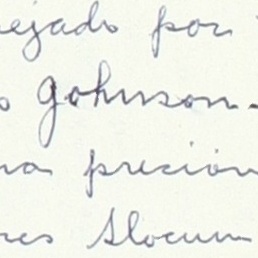 ejado por
Johnson.
na precisión
res Slocum